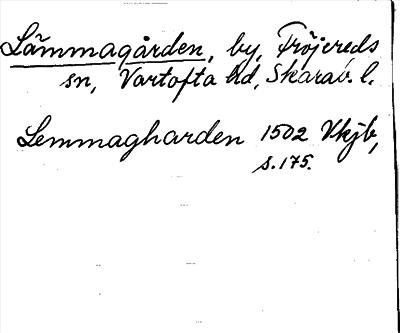 Lämmagården, by, Fröjereds
sn, Vartofta hd, Skarab. l.
Lemmagharden 1502 Vkjb,
s. 175.